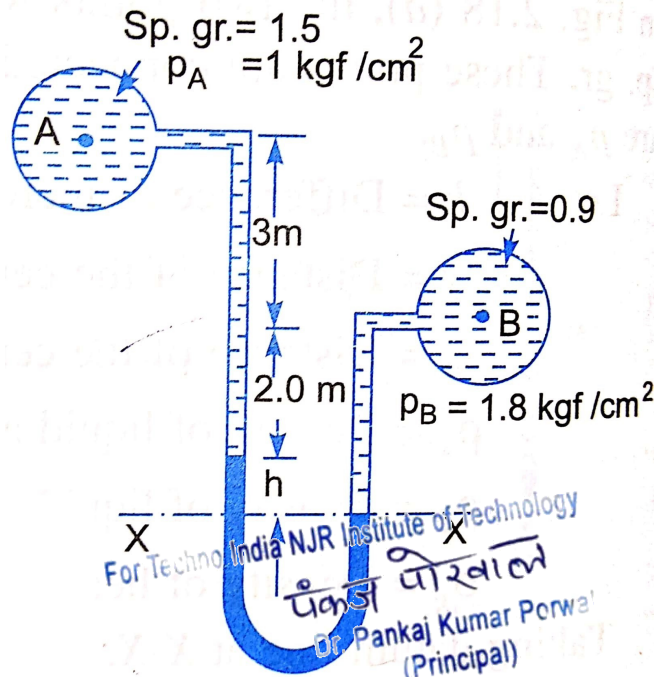 Fig. 2.18 (a).
Sp. gr.= 1.5
p_A =1 kgf /cm²
A
3m
Sp. gr.=0.9
B
2.0 m
p_B = 1.8 kgf /cm²
h
X X
For Techno India NJR Institute of Technology
पंकज पोरवाल
Dr. Pankaj Kumar Porwal
(Principal)